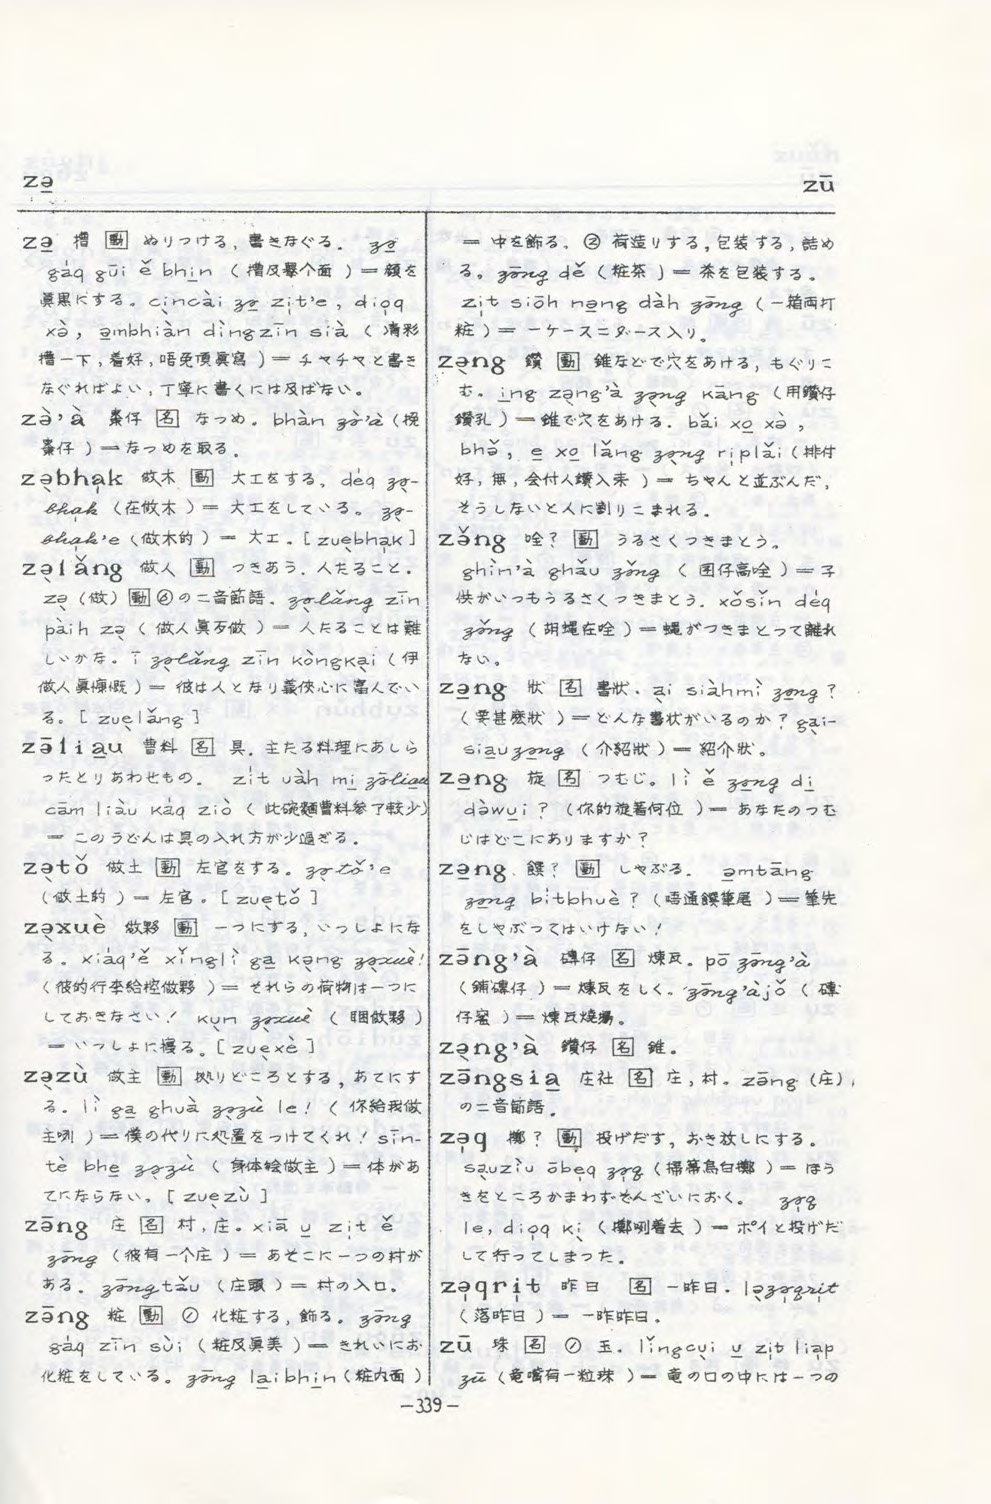 zə̱
zū
zə̱ 槽 動 ぬりつける, 書きなぐる. zə̱
gáq gūi ě bhi̱n （槽及舉个面）＝顔を
眞黒にする。ci̖ncài zə̱ zi̍t'e, dio̍q
xə̀, ə̱mbhiàn dìngzīn sià （凊彩
槽一下,着好,唔免頂眞寫）＝チャチャと書き
なぐればよい,丁寧に書くには及ばない。
zə̀'à 棗仔 名 なつめ. bhàn zə̀'à（挽
棗仔）＝なつめを取る.
zə̖bha̍k 做木 動 大工をする. déq zə̖-
bha̍k （在做木）＝大工をしている。zə̖-
bha̍k'e（做木的）＝大工.［zue̖bha̍k］
zə̖lǎng 做人 動 つきあう. 人たること.
zə̖（做）動④の二音節語. zə̖lǎng zīn
pàih zə̖ （做人眞歹做）＝人たることは難
しいかな。ī zə̖lǎng zīn kòngka̖i（伊
做人眞慷慨）＝彼は人となり義侠心に富んでい
る。［zue̖lǎng］
zəliau 曹料 名 具. 主たる料理にあしら
ったとりあわせもの. zi̍t uàh mi̱ zəliau
cām liàu káq ziò （此碗麵曹料参了較少）
＝このうどんは具の入れ方が少過ぎる.
zə̖tǒ 做土 動 左官をする。zə̖tǒ'e
（做土的）＝左官。［zue̖tǒ］
zə̖xuè 做夥 動 一つにする, いっしょにな
る. xiáq'ě xǐnglì ga̱ ka̖ng zə̖xuè!
（彼的行李給控做夥）＝それらの荷物は一つに
しておきなさい! ku̖n zə̖xuè （睏做夥）
＝いっしょに寝る。［zue̖xè］
zə̖zù 做主 動 拠りどころとする, あてにす
る. lì ga̱ ghuà zə̖zù le! （你給我做
主咧）＝僕の代りに処置をつけてくれ! sīn-
tè bhe̱ zə̖zù （身体𣍐做主）＝体があ
てにならない。［zue̖zù］
zəng 庄 名 村, 庄. xiā u̱ zi̍t ě
zəng （彼有一个庄）＝あそこに一つの村が
ある. zəngtǎu （庄頭）＝村の入口.
zəng 粧 動 ① 化粧する, 飾る. zəng
gáq zīn sùi （粧及眞美）＝きれいにお
化粧をしている。zəng la̱ibhi̱n（粧内面）
＝中を飾る. ② 荷造りする, 包装する, 詰め
る. zəng dě （粧茶）＝茶を包装する.
zi̍t siōh nə̱ng dàh zəng （一箱両打
粧）＝一ケース二ダース入り。
zə̖ng 鑽 動 錐などで穴をあける, もぐりこ
む. i̱ng zə̖ng'à zə̖ng kāng （用鑽仔
鑽孔）＝錐で穴をあける. bǎi xo̱ xə̀,
bhə̌, e̱ xo̱ lǎng zə̖ng ri̍plǎi（排付
好, 無, 会付人鑽入来）＝ちゃんと並ぶんだ,
そうしないと人に割りこまれる.
zə̌ng 唑? 動 うるさくつきまとう。
ghìn'à ghǎu zə̌ng （囝仔高唑）＝子
供がいつもうるさくつきまとう. xǒsǐn déq
zə̌ng （胡蠅在唑）＝蝿がつきまとって離れ
ない.
zə̱ng 狀 名 書狀. a̖i siàhmì zə̱ng ?
（要甚麼狀）＝どんな書状がいるのか? ga̖i-
siau zə̱ng （介紹狀）＝紹介状.
zə̱ng 旋 名 つむじ。lì ě zə̱ng di̱
dàwu̱i ? （你的旋著何位）＝あなたのつむ
じはどこにありますか?
zə̱ng 饌? 動 しゃぶる. ə̱mtāng
zə̱ng bi̍tbhuè ? （唔通饌筆尾）＝筆先
をしゃぶってはいけない!
zəng'à 磚仔 名 煉瓦. pō zəng'à
（鋪磚仔）＝煉瓦をしく. zəng'àjǒ （磚
仔窰）＝煉瓦燒場。
zə̖ng'à 鑽仔 名 錐.
zəngsia̱ 庄社 名 庄, 村. zəng（庄）
の二音節語.
zə̍q 擲? 動 投げだす, おき放しにする.
sa̖uzìu ōbe̍q zə̍q（掃箒烏白擲）＝ほう
きをところかまわずぞんざいにおく. zə̍q
le, dio̍q ki̖ （擲咧着去）＝ポイと投げだ
して行ってしまった.
zə̍qri̍t 昨日 名 一昨日. lə̍zə̍qri̍t
（落昨日）＝一昨昨日.
zū 珠 名 ① 玉. lǐngcu̖i u̱ zi̍t lia̍p
zū （竜嘴有一粒珠）＝竜の口の中には一つの
—339—